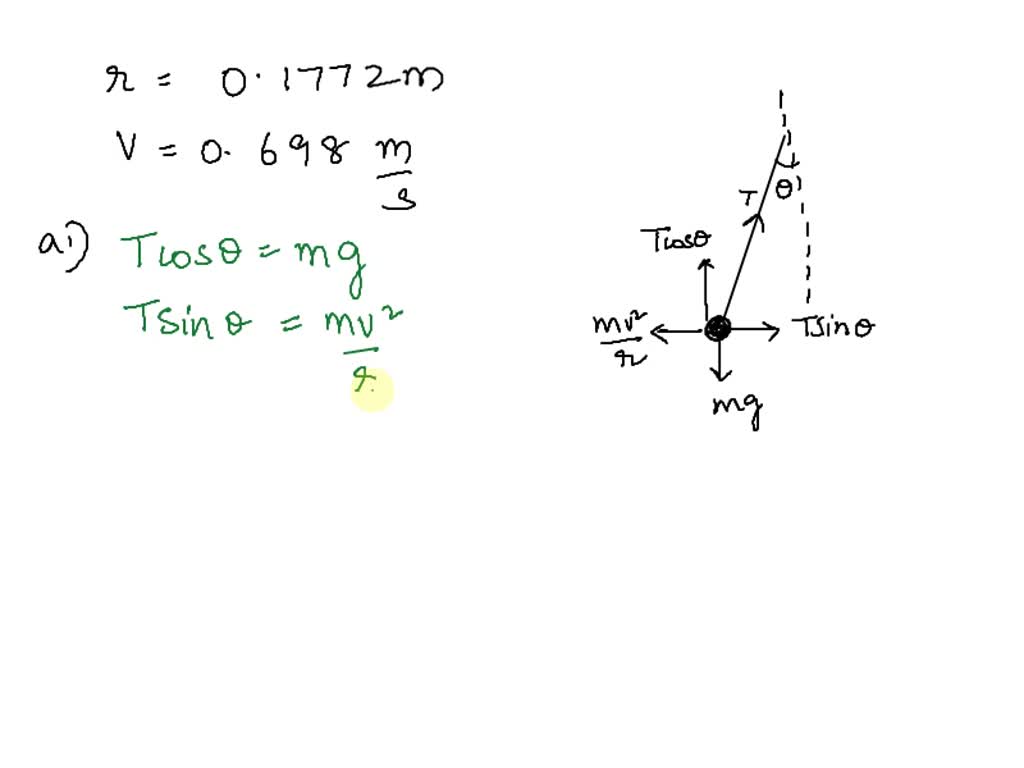 r = 0.1772m
V = 0.698 m/s
ai) Tcosθ = mg
Tsinθ = mv²/r
T θ
Tcosθ
mv²/r
Tsinθ
mg